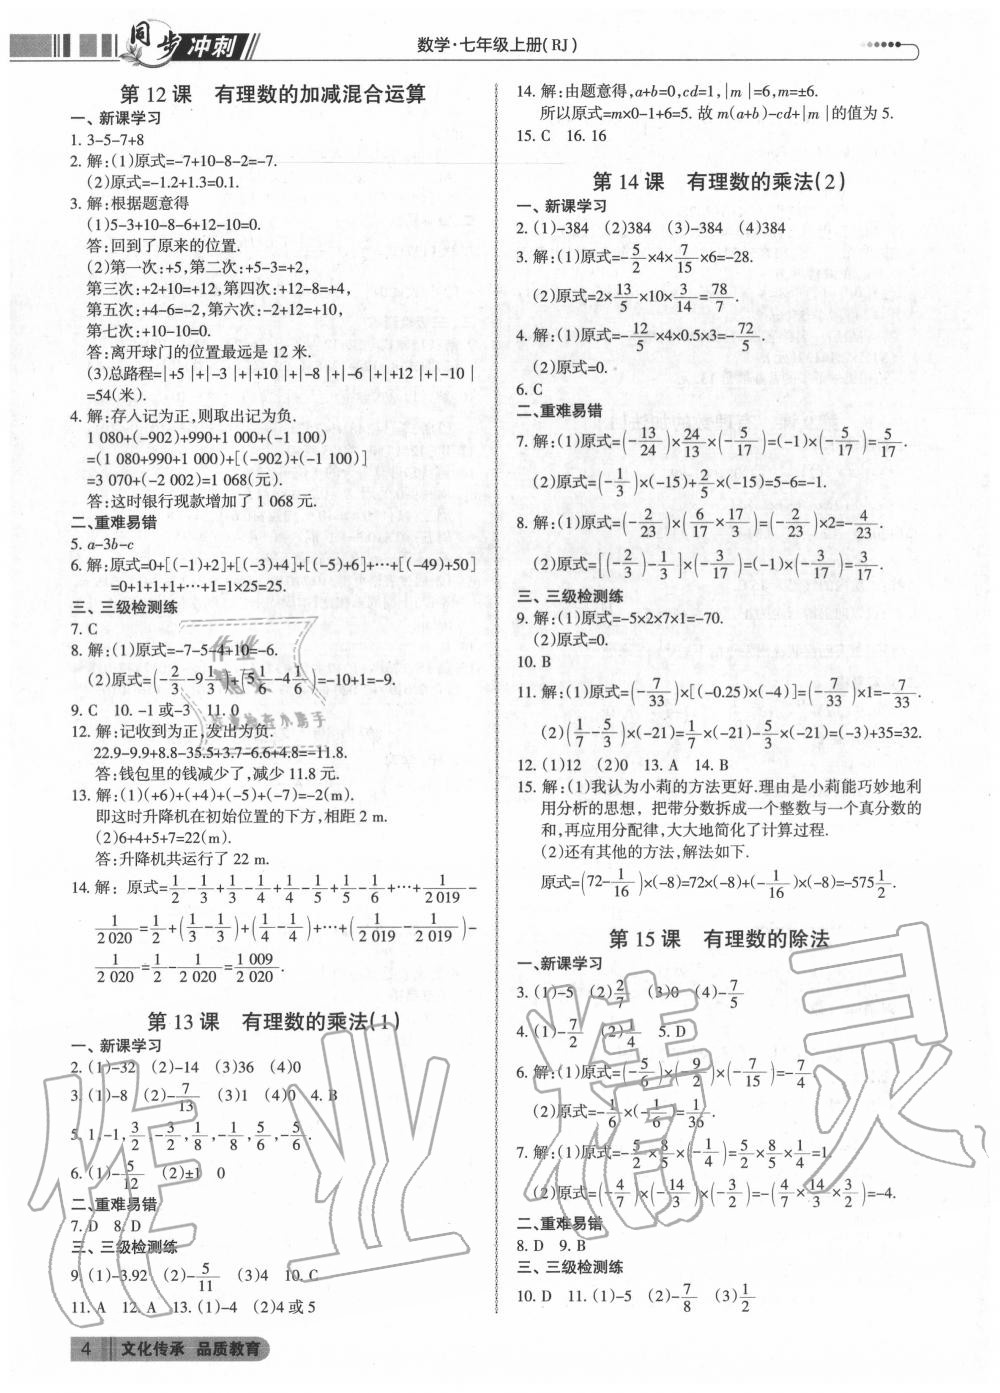 同步冲刺
数学·七年级上册(RJ)
第12课 有理数的加减混合运算
一、新课学习
1. 3-5-7+8
2. 解:(1)原式=-7+10-8-2=-7.
(2)原式=-1.2+1.3=0.1.
3. 解:根据题意得
(1)5-3+10-8-6+12-10=0.
答:回到了原来的位置.
(2)第一次:+5,第二次:+5-3=+2,
第三次:+2+10=+12,第四次:+12-8=+4,
第五次:+4-6=-2,第六次:-2+12=+10,
第七次:+10-10=0.
答:离开球门的位置最远是 12 米.
(3)总路程=|+5|+|-3|+|+10|+|-8|+|-6|+|+12|+|-10|
=54(米).
4. 解:存入记为正,则取出记为负.
1 080+(-902)+990+1 000+(-1 100)
=(1 080+990+1 000)+[(-902)+(-1 100)]
=3 070+(-2 002)=1 068(元).
答:这时银行现款增加了 1 068 元.
二、重难易错
5. a-3b-c
6. 解:原式=0+[(-1)+2]+[(-3)+4]+[(-5)+6]+…+[(-49)+50]
=0+1+1+1+…+1=1×25=25.
三、三级检测练
7. C
8. 解:(1)原式=-7-5-4+10=-6.
(2)原式=(-2/3-9 1/3)+(5 1/6-4 1/6)=-10+1=-9.
9. C 10. -1 或-3 11. 0
12. 解:记收到为正,发出为负.
22.9-9.9+8.8-35.5+3.7-6.6+4.8=-11.8.
答:钱包里的钱减少了,减少 11.8 元.
13. 解:(1)(+6)+(+4)+(-5)+(-7)=-2(m).
即这时升降机在初始位置的下方,相距 2 m.
(2)6+4+5+7=22(m).
答:升降机共运行了 22 m.
14. 解: 原式=1/2-1/3+1/3-1/4+1/4-1/5+1/5-1/6+…+1/2 019-
1/2 020=1/2+(1/3-1/3)+(1/4-1/4)+…+(1/2 019-1/2 019)-
1/2 020=1/2-1/2 020=1 009/2 020.
第13课 有理数的乘法(1)
一、新课学习
2. (1)-32 (2)-14 (3)36 (4)0
3. (1)-8 (2)-7/13 (3)1 (4)0 4. B
5. 1,-1,3/2,-3/2,1/8,-1/8,5/6,-5/6.
6. (1)-5/12 (2)±1 0
二、重难易错
7. D 8. D
三、三级检测练
9. (1)-3.92 (2)-5/11 (3)4 10. C
11. A 12. A 13. (1)-4 (2)4 或 5
14. 解:由题意得,a+b=0,cd=1,|m|=6,m=±6.
所以原式=m×0-1+6=5. 故 m(a+b)-cd+|m|的值为 5.
15. C 16. 16
第14课 有理数的乘法(2)
一、新课学习
2. (1)-384 (2)384 (3)-384 (4)384
3. 解:(1)原式=-5/2×4×7/15×6=-28.
(2)原式=2×13/5×10×3/14=78/7.
4. 解:(1)原式=-12/5×4×0.5×3=-72/5.
(2)原式=0.
6. C
二、重难易错
7. 解:(1)原式=(-13/24)×24/13×(-5/17)=(-1)×(-5/17)=5/17.
(2)原式=(-1/3)×(-15)+2/5×(-15)=5-6=-1.
8. 解:(1)原式=(-2/23)×(6/17×17/3)=(-2/23)×2=-4/23.
(2)原式=[(-2/3)-1/3]×(-3/17)=(-1)×(-3/17)=3/17.
三、三级检测练
9. 解:(1)原式=-5×2×7×1=-70.
(2)原式=0.
10. B
11. 解:(1)原式=(-7/33)×[(-0.25)×(-4)]=(-7/33)×1=-7/33.
(2)(1/7-5/3)×(-21)=1/7×(-21)-5/3×(-21)=(-3)+35=32.
12. (1)12 (2)0 13. A 14. B
15. 解:(1)我认为小莉的方法更好.理由是小莉能巧妙地利
用分析的思想, 把带分数拆成一个整数与一个真分数的
和,再应用分配律,大大地简化了计算过程.
(2)还有其他的方法,解法如下.
原式=(72-1/16)×(-8)=72×(-8)+(-1/16)×(-8)=-575 1/2.
第15课 有理数的除法
一、新课学习
3. (1)-5 (2)2/7 (3)0 (4)-7/5
4. (1)-7/2 (2)1/4 5. D
6. 解:(1)原式=(-5/6)×(-9/2)×(-7/15)=-7/4.
(2)原式=-1/6×(-1/6)=1/36.
7. 解:(1)原式=-5/2×8/5×(-1/4)=5/2×8/5×1/4=1.
(2)原式=(-4/7)×(-14/3)×(-3/2)=-(4/7×14/3×3/2)=-4.
二、重难易错
8. D 9. B
三、三级检测练
10. D 11. (1)-5 (2)-7/8 (3)1/2
4 文化传承 品质教育
作业精灵